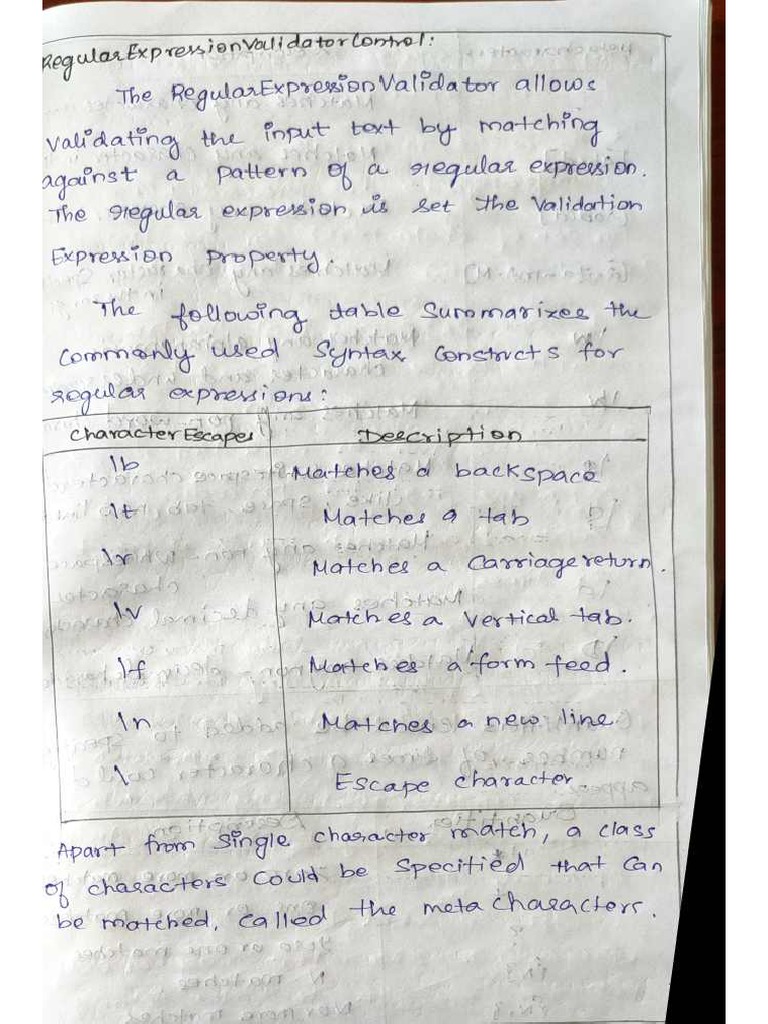 RegularExpressionValidatorControl:
The RegularExpressionValidator allows
validating the input text by matching
against a pattern of a regular expression.
The regular expression is set the Validation
Expression property.
The following table Summarizes the
commonly used Syntax constructs for
regular expressions:
Character Escapes Description
\b Matches a backspace
\t Matches a tab
\r Matches a Carriage return.
\v Matches a vertical tab.
\f Matches a form feed.
\n Matches a new line
\ Escape character
Apart from single character match, a class
of characters could be specified that can
be matched, called the meta characters.